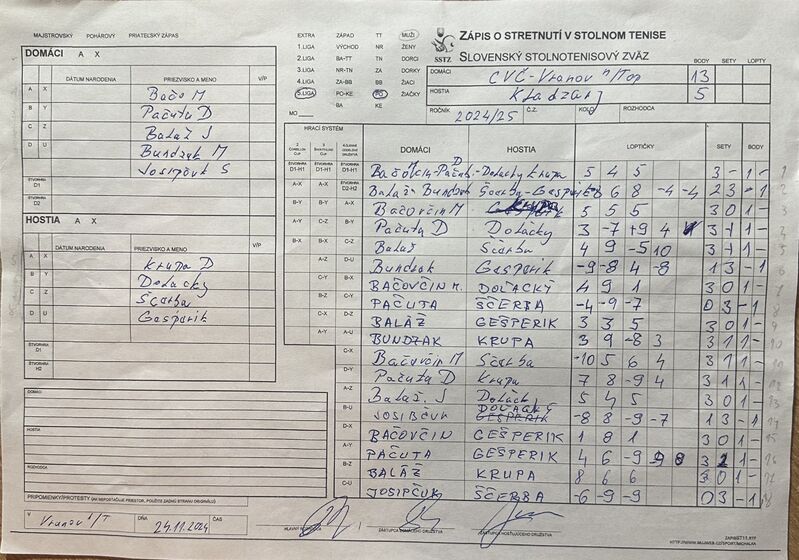 MAJSTROVSKÝ POHÁROVÝ PRIATEĽSKÝ ZÁPAS
EXTRA ZÁPAD TT MUŽI
1.LIGA VÝCHOD NR ŽENY
2.LIGA BA-TT TN DORCI
3.LIGA NR-TN ZA DORKY
4.LIGA ZA-BB BB ŽIACI
5.LIGA PO-KE PO ŽIAČKY
BA KE
MO
SSTZ
ZÁPIS O STRETNUTÍ V STOLNOM TENISE
SLOVENSKÝ STOLNOTENISOVÝ ZVÄZ
BODY SETY LOPTY
DOMÁCI CVČ-Vranov n/Top 13
HOSTIA Kladzany 5
ROČNÍK 2024/25 Č.Z. KOLO ROZHODCA
DOMÁCI A X
DÁTUM NARODENIA PRIEZVISKO A MENO V/P
A X Bačo M
B Y Pačuta D
C Z Baláž J
D U Bundzak M
Josipčuk S
ŠTVORHRA D1
ŠTVORHRA D2
HOSTIA A X
DÁTUM NARODENIA PRIEZVISKO A MENO V/P
A X Krupa D
B Y Dolacky
C Z Ščerba
D U Gešperik
ŠTVORHRA D1
ŠTVORHRA H2
DOMÁCI
HOSTIA
ROZHODCA
PRIPOMIENKY/PROTESTY (AK NEPOSTAČUJE PRIESTOR, POUŽITE ZADNÚ STRANU ORIGINÁLU)
V Vranov n/T DŇA 24.11.2024 ČAS
HRACÍ SYSTÉM
DOMÁCI HOSTIA LOPTIČKY SETY BODY
D1-H1 D1-H1 D1-H1 Dolacky Krupa 5 4 5 3 - 1 - 1
A-X A-X D2-H2 Balaž-Bundzak Ščerba-Gesperik 6 8 -4 -4 2 3 - 1 2
B-Y B-Y A-X Bačovčin M 5 5 5 3 0 1 - 3
A-Y C-Z B-Y Pačuta D Dolacky 3 -7 +9 4 1 -
B-X B-X C-Z Balaž Ščerba 4 9 -5 10 1 -
A-Z D-U Bundzak Gasperik -9 -8 4 -8 1 3 - 1
C-Y B-X BAČOVČIN M. DOĽACKÝ 4 9 1 3 0 1 -
B-Z C-Y PAČUTA ŠČERBA -4 -9 -7 0 3 - 1
C-X A-U BALÁŽ GEŠPERIK 3 3 5 3 0 1 -
A-Y BUNDZAK KRUPA 3 9 -8 3 3 1 1 - 10
C-X Bačovčin M Sčerba -10 5 6 4 3 1 1 -
Pačuta D Krupa 7 8 -9 4 3 1 1 -
A-Z Balaž. J 5 4 5 3 0 1 -
B-U JOSIPČUK DOĽACKÝ -8 8 -9 -7 1 3 - 1
D-X BAČOVČIN GEŠPERIK 1 8 1 3 0 1 - 15
A-Y PAČUTA GEŠPERIK 4 6 -9 8 3 1 - 16
B-Z BALÁŽ KRUPA 8 6 6 3 0 1 -
C-U JOSIPČUK ŠČERBA -6 -9 -9 0 3 - 1 18
HLAVNÝ ROZHODCA ZÁSTUPCA DOMÁCEHO DRUŽSTVA ZÁSTUPCA HOSŤUJÚCEHO DRUŽSTVA
ZAPISST11.RTF